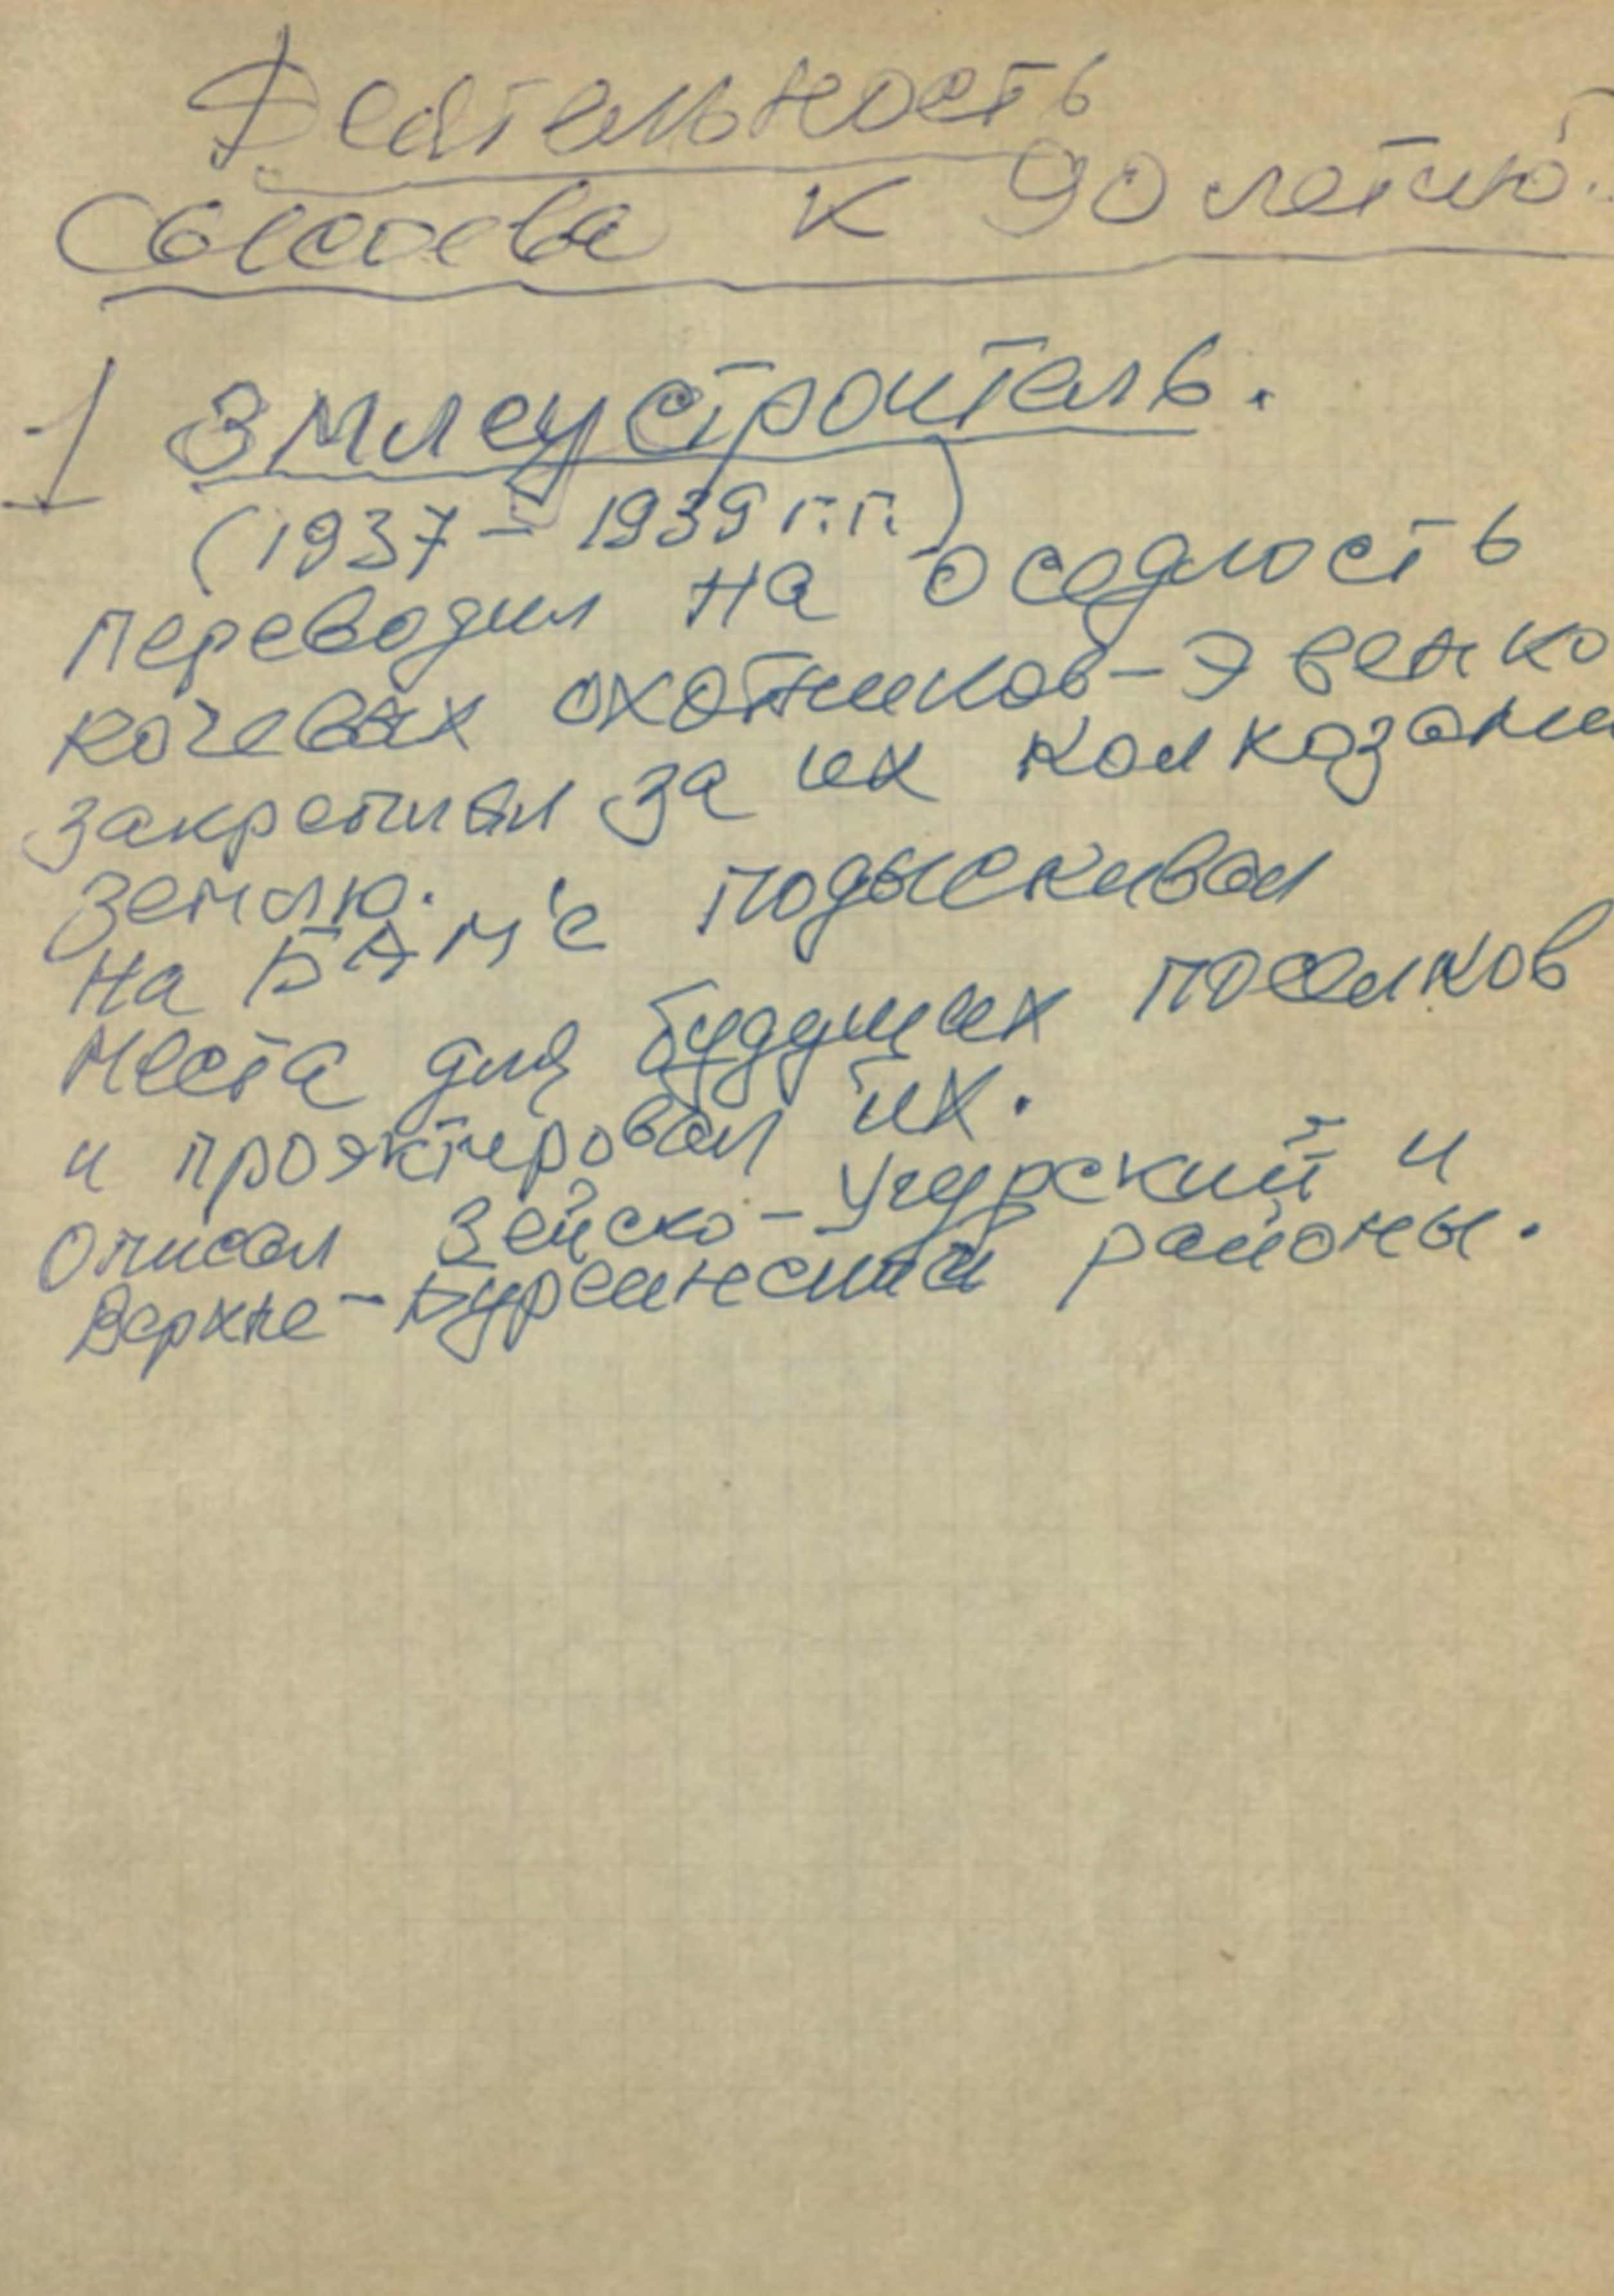 Деятельность
Сысоева к 90 летию.
1 Змлеустроитель.
(1937 – 1939 г.г.)
переводил на оседлость
кочевых охотников – Эвенко
закреплял за их колхозами
землю.
На БАМ'е подыскивал
места для будущих поселков
и проэктировал их.
Описал Зейско – Учурский и
Верхне – Буреинский районы.